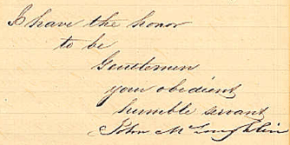 I have the honor
to be
Gentlemen
your obedient
humble servant
John McLoughlin